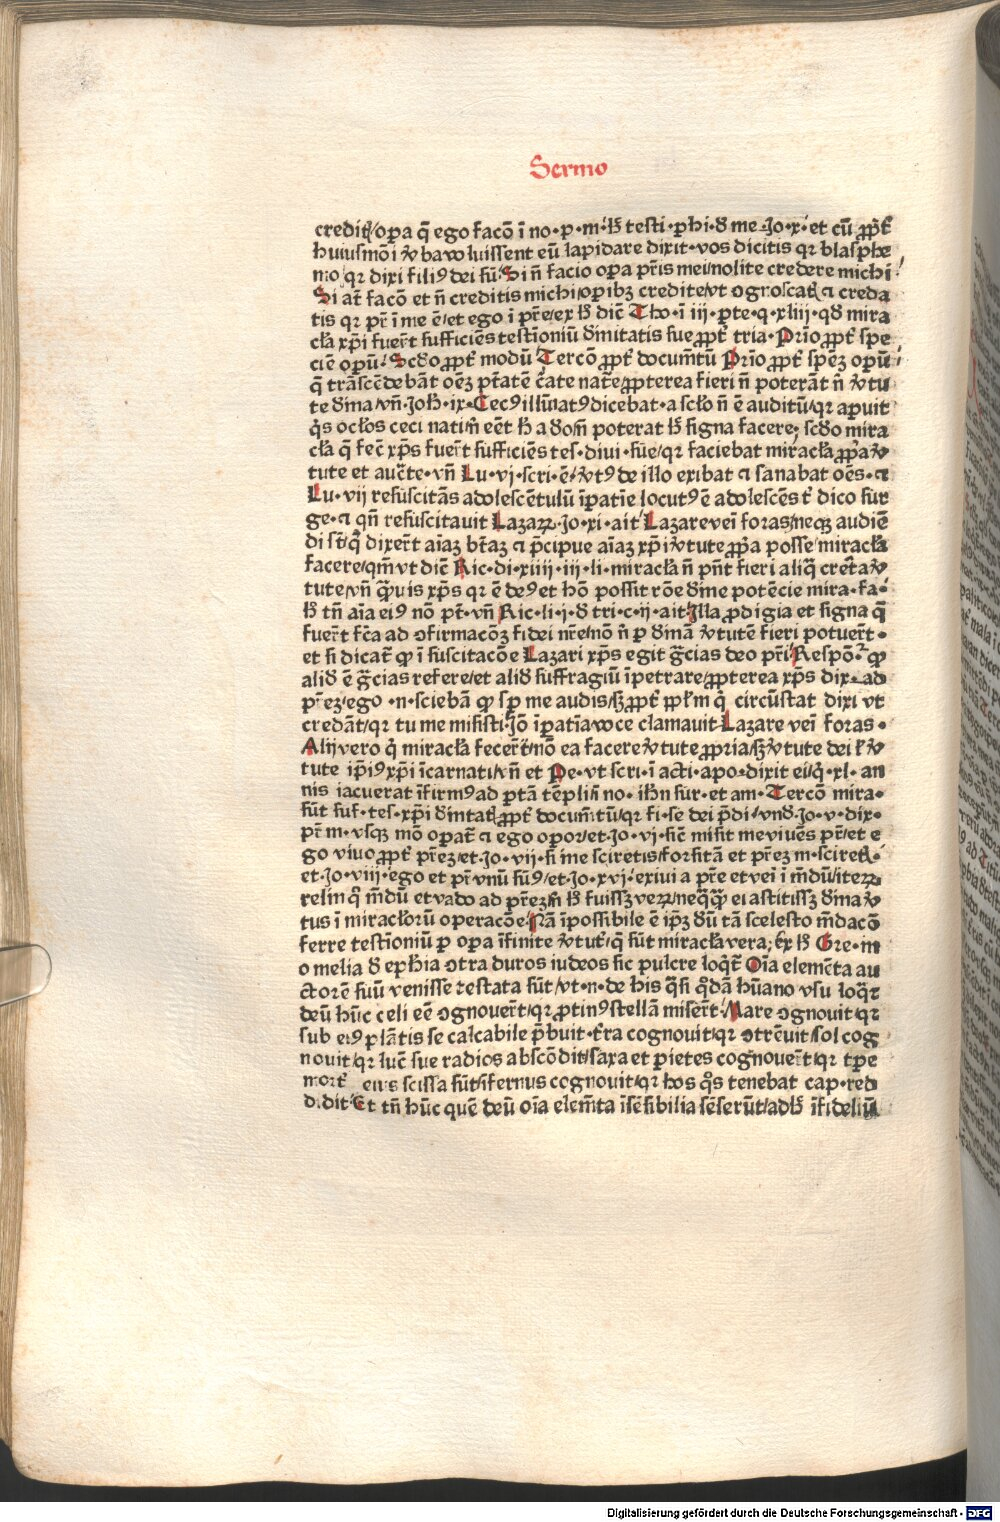 Sermo
creditꝭ/oꝑa q̄ ego facō ī no·p·m·/hͦ testi·ꝑhi·ð me·Jo·x·/et cū ꝓpt̄
huiusmōi v̄ba voluissent eū lapidare dixit·vos dicitis qꝛ blasphe
mo qꝛ dixi fili9 dei sū/Si n̄ facio oꝑa pr̄is mei/nolite credere michi
Si at̄ facō et n̄ creditis michi/oꝑibꝫ credite/vt ↄgnoscatꝭ ⁊ creda
tis qꝛ pr̄ ī me ē/et ego ī pr̄e/ex hͦ diē Tho·ī iii·ꝑte·q·xliii·qð mira
cl̄a xp̄i fuer̄t sufficiēs testīoniū dīnitatis sue ꝓpt̄ tria·Prīo ꝓpt̄ spe
ciē oꝑū·Scðo ꝓpt̄ modū Tercō ꝓpt̄ docum̄tū Prīo ꝓpt̄ spēꝫ oꝑū
q̄ trāscēdebāt oēꝫ ptātē c̄ate nat̄e/ꝓpterea fieri n̄ poterāt n̄ v̄tu
te dīna/vn̄·Joh̄·ix·Cec9 illūat9 dicebat·a scl̄o n̄ ē auditū/qꝛ aꝑuit
q̄s ocl̄os ceci nati/n̄ eēt h̄ a dōn poterat hͦ signa facere; scðo mira
cl̄a q̄ fec̄ xp̄s fuer̄t sufficiēs tes·divi·sūe/qꝛ faciebat miracl̄a ꝓp̄a v̄
tute et auc̄te·vn̄ Lu·vj·scri·ē·v̄t9 de illo exibat ⁊ sanabat oēs·⁊
Lu·vij resuscitās adolescētulū īpatīe locut9 ē adolescēs t̄ dico sur
ge·⁊ qn̄ resuscitavit Lazaꝝ·Jo·xi·ait/Lazare veī foras/necꝫ audiē
di st̄/q̄ dixer̄t aīaꝫ bt̄aꝫ ⁊ p̄cipue aīaꝫ xp̄i v̄tute ꝓp̄a posse miracl̄a
facere/qm̄ vt diē Ric·di·xiiii·iii·li·miracl̄a n̄ pn̄t fieri aliq̄ cre̅ta v̄
tute/vn̄ q̄uis xp̄s qꝛ ē de9 et hō possit rōe dīne potēcie mira·fa·
hͦ tn̄ aīa ei9 nō pt̄·vn̄ Ric·li·j·ð tri·c·ij·ait/Illa ꝓdigia et signa q̄
fuer̄t fc̄a ad ↄfirmacōꝫ fidei nr̄e/nō n̄ ꝑ dīnā v̄tutē fieri potuer̄t·
et si dicat̄ ꝙ ī suscitacōe Lazari xp̄s egit gr̄cias deo pr̄i/Respō·ꝙ
alið ē gr̄cias refere/et alið suffragiū īpetrare/ꝓpterea xp̄s dix·ad
pr̄eꝫ/ego·n·sciebā ꝙ sꝑ me audis/sꝫ ꝓpt̄ ppl̄m q̄ circūstat dixi vt
credāt/qꝛ tu me misisti·Jō īpatīa voce clamavit Lazare veī foras·
Alij vero q̄ miracl̄a fecer̄t/nō ea facere v̄tute ꝓpria/sꝫ v̄tute dei t̄ v̄
tute ip̄i9 xp̄i īcarnati/vn̄ et Pe·vt scri·ī acti·apo·dixit ei/q̄·xl·an
nis iacuerat īfirm9 ad portā tēpli/ī no·ih̄u sur·et am·Tercō mira·
sūt suf·tes·xp̄i dīntatꝭ ꝓpt̄ docum̄tū/qꝛ fi·se dei p̄di/vnð·Jo·v·dix·
pr̄ m·vsqꝫ mō oꝑat̄ ⁊ ego oꝑor/et·Jo·vj·sic̄ misit me viuēs pr̄/et e
go viuo ꝓpt̄ pr̄eꝫ/et·Jo·vij·si me sciretis/forsitā et pr̄eꝫ m·sciretꝭ·
et·Jo·viij·ego et pr̄ vnū sū9/et·Jo·xvj·exiui a pr̄e et veī ī m̄dū/iteꝝ
relinq̄ m̄dū et vado ad pr̄eꝫ/n̄ hͦ fuissꝫ veꝝ/neq̄q̄ ei astitissꝫ dīna v̄
tus ī miracl̄orū operacōe·Nā īpossibile ē ip̄ꝫ dū tā scelesto m̄dacō
ferre testīoniū ꝑ oꝑa īfinite v̄tut̄/q̄ sūt miracl̄a vera; Ex hͦ Gre·in
omelia ð epͥhia ↄtra duros iudeos sic pulcre loq̄t̄ Oīa elemēta au
ctorē suū venisse testata sūt/vt·n·de his q̄si q̄dā hūano vsu loq̄r
deū hūc celi eē ↄgnouer̄t/qꝛ ꝓtin9 stellā miser̄t·Mare ↄgnouit/qꝛ
sub ei9 plātis se calcabile p̄buit·t̄ra cognouit/qꝛ ↄtrēuit/sol cog
nouit/qꝛ lucē sue radios abscōdit/saxa et ꝑietes cognouer̄t/qꝛ tꝑe
mort̄ eius scissa sūt/īfernus cognouit/qꝛ hos q̄s tenebat cap·red
didit/Et tn̄ hūc quē deū oīa elem̄ta īsēsibilia sēserūt/adhͦ īfideliū
Digitalisierung gefördert durch die Deutsche Forschungsgemeinschaft - DFG